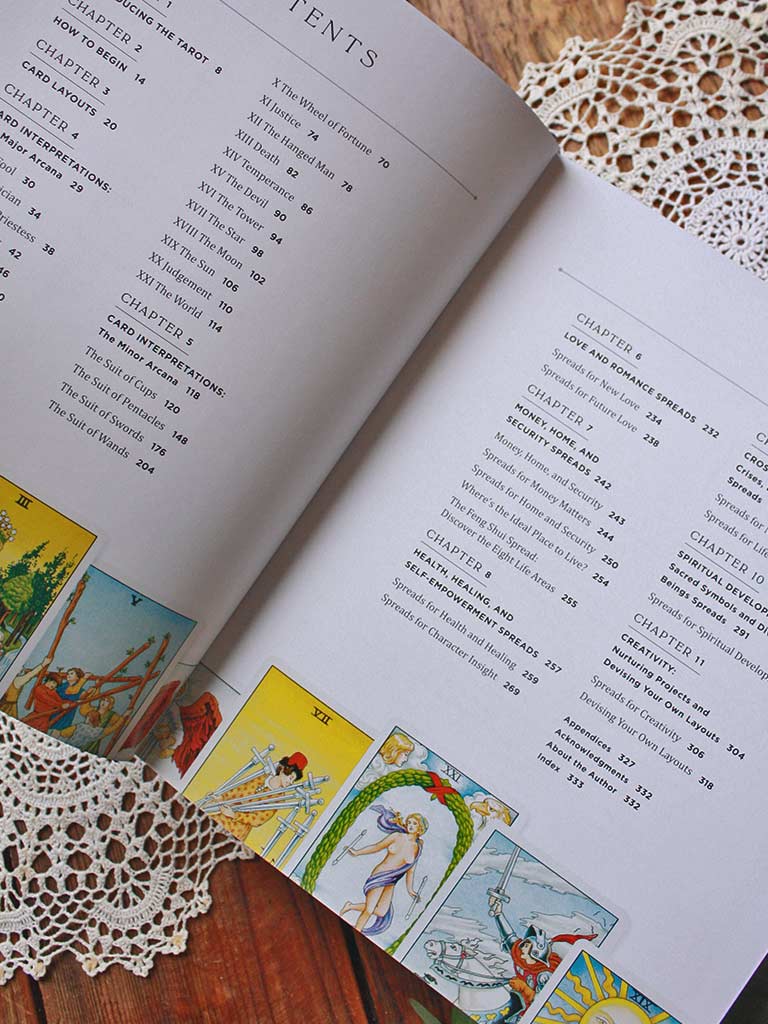 TENTS
1
DUCING THE TAROT 8
CHAPTER 2
HOW TO BEGIN 14
CHAPTER 3
CARD LAYOUTS 20
CHAPTER 4
ARD INTERPRETATIONS:
Major Arcana 29
ool 30
ician 34
riestess 38
42
46
X The Wheel of Fortune 70
XI Justice 74
XII The Hanged Man 78
XIII Death 82
XIV Temperance 86
XV The Devil 90
XVI The Tower 94
XVII The Star 98
XVIII The Moon 102
XIX The Sun 106
XX Judgement 110
XXI The World 114
CHAPTER 5
CARD INTERPRETATIONS:
The Minor Arcana 118
The Suit of Cups 120
The Suit of Pentacles 148
The Suit of Swords 176
The Suit of Wands 204
CHAPTER 6
LOVE AND ROMANCE SPREADS 232
Spreads for New Love 234
Spreads for Future Love 238
CHAPTER 7
MONEY, HOME, AND
SECURITY SPREADS 242
Money, Home, and Security 243
Spreads for Money Matters 244
Spreads for Home and Security 250
Where's the Ideal Place to Live? 254
The Feng Shui Spread:
Discover the Eight Life Areas 255
CHAPTER 8
HEALTH, HEALING, AND
SELF-EMPOWERMENT SPREADS 257
Spreads for Health and Healing 259
Spreads for Character Insight 269
CROS
Crises,
Spreads
Spreads for
Spreads for Life
CHAPTER 10
SPIRITUAL DEVELOP
Sacred Symbols and Di
Beings Spreads 291
Spreads for Spiritual Develop
CHAPTER 11
CREATIVITY:
Nurturing Projects and
Devising Your Own Layouts 304
Spreads for Creativity 306
Devising Your Own Layouts 318
Appendices 327
Acknowledgments 332
About the Author 332
Index 333
III
V
VII
XXI
XIX